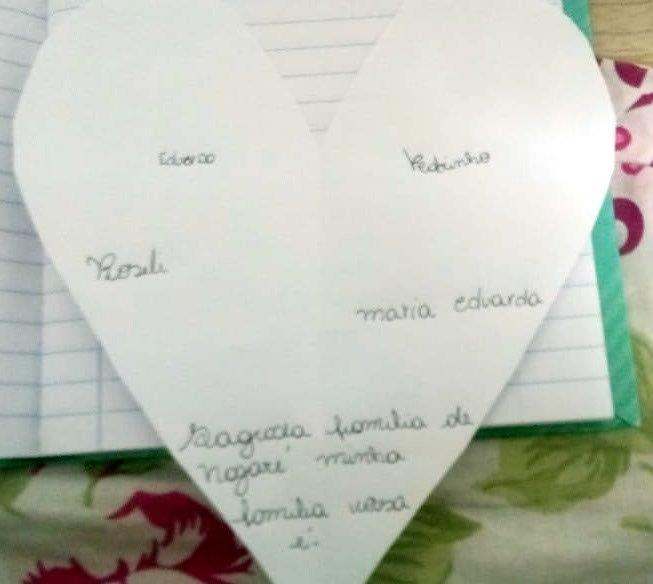 Eduardo
Pedrinho
Roseli
maria eduarda
Sagrada familia de
Nazaré minha
familia vossa
é.